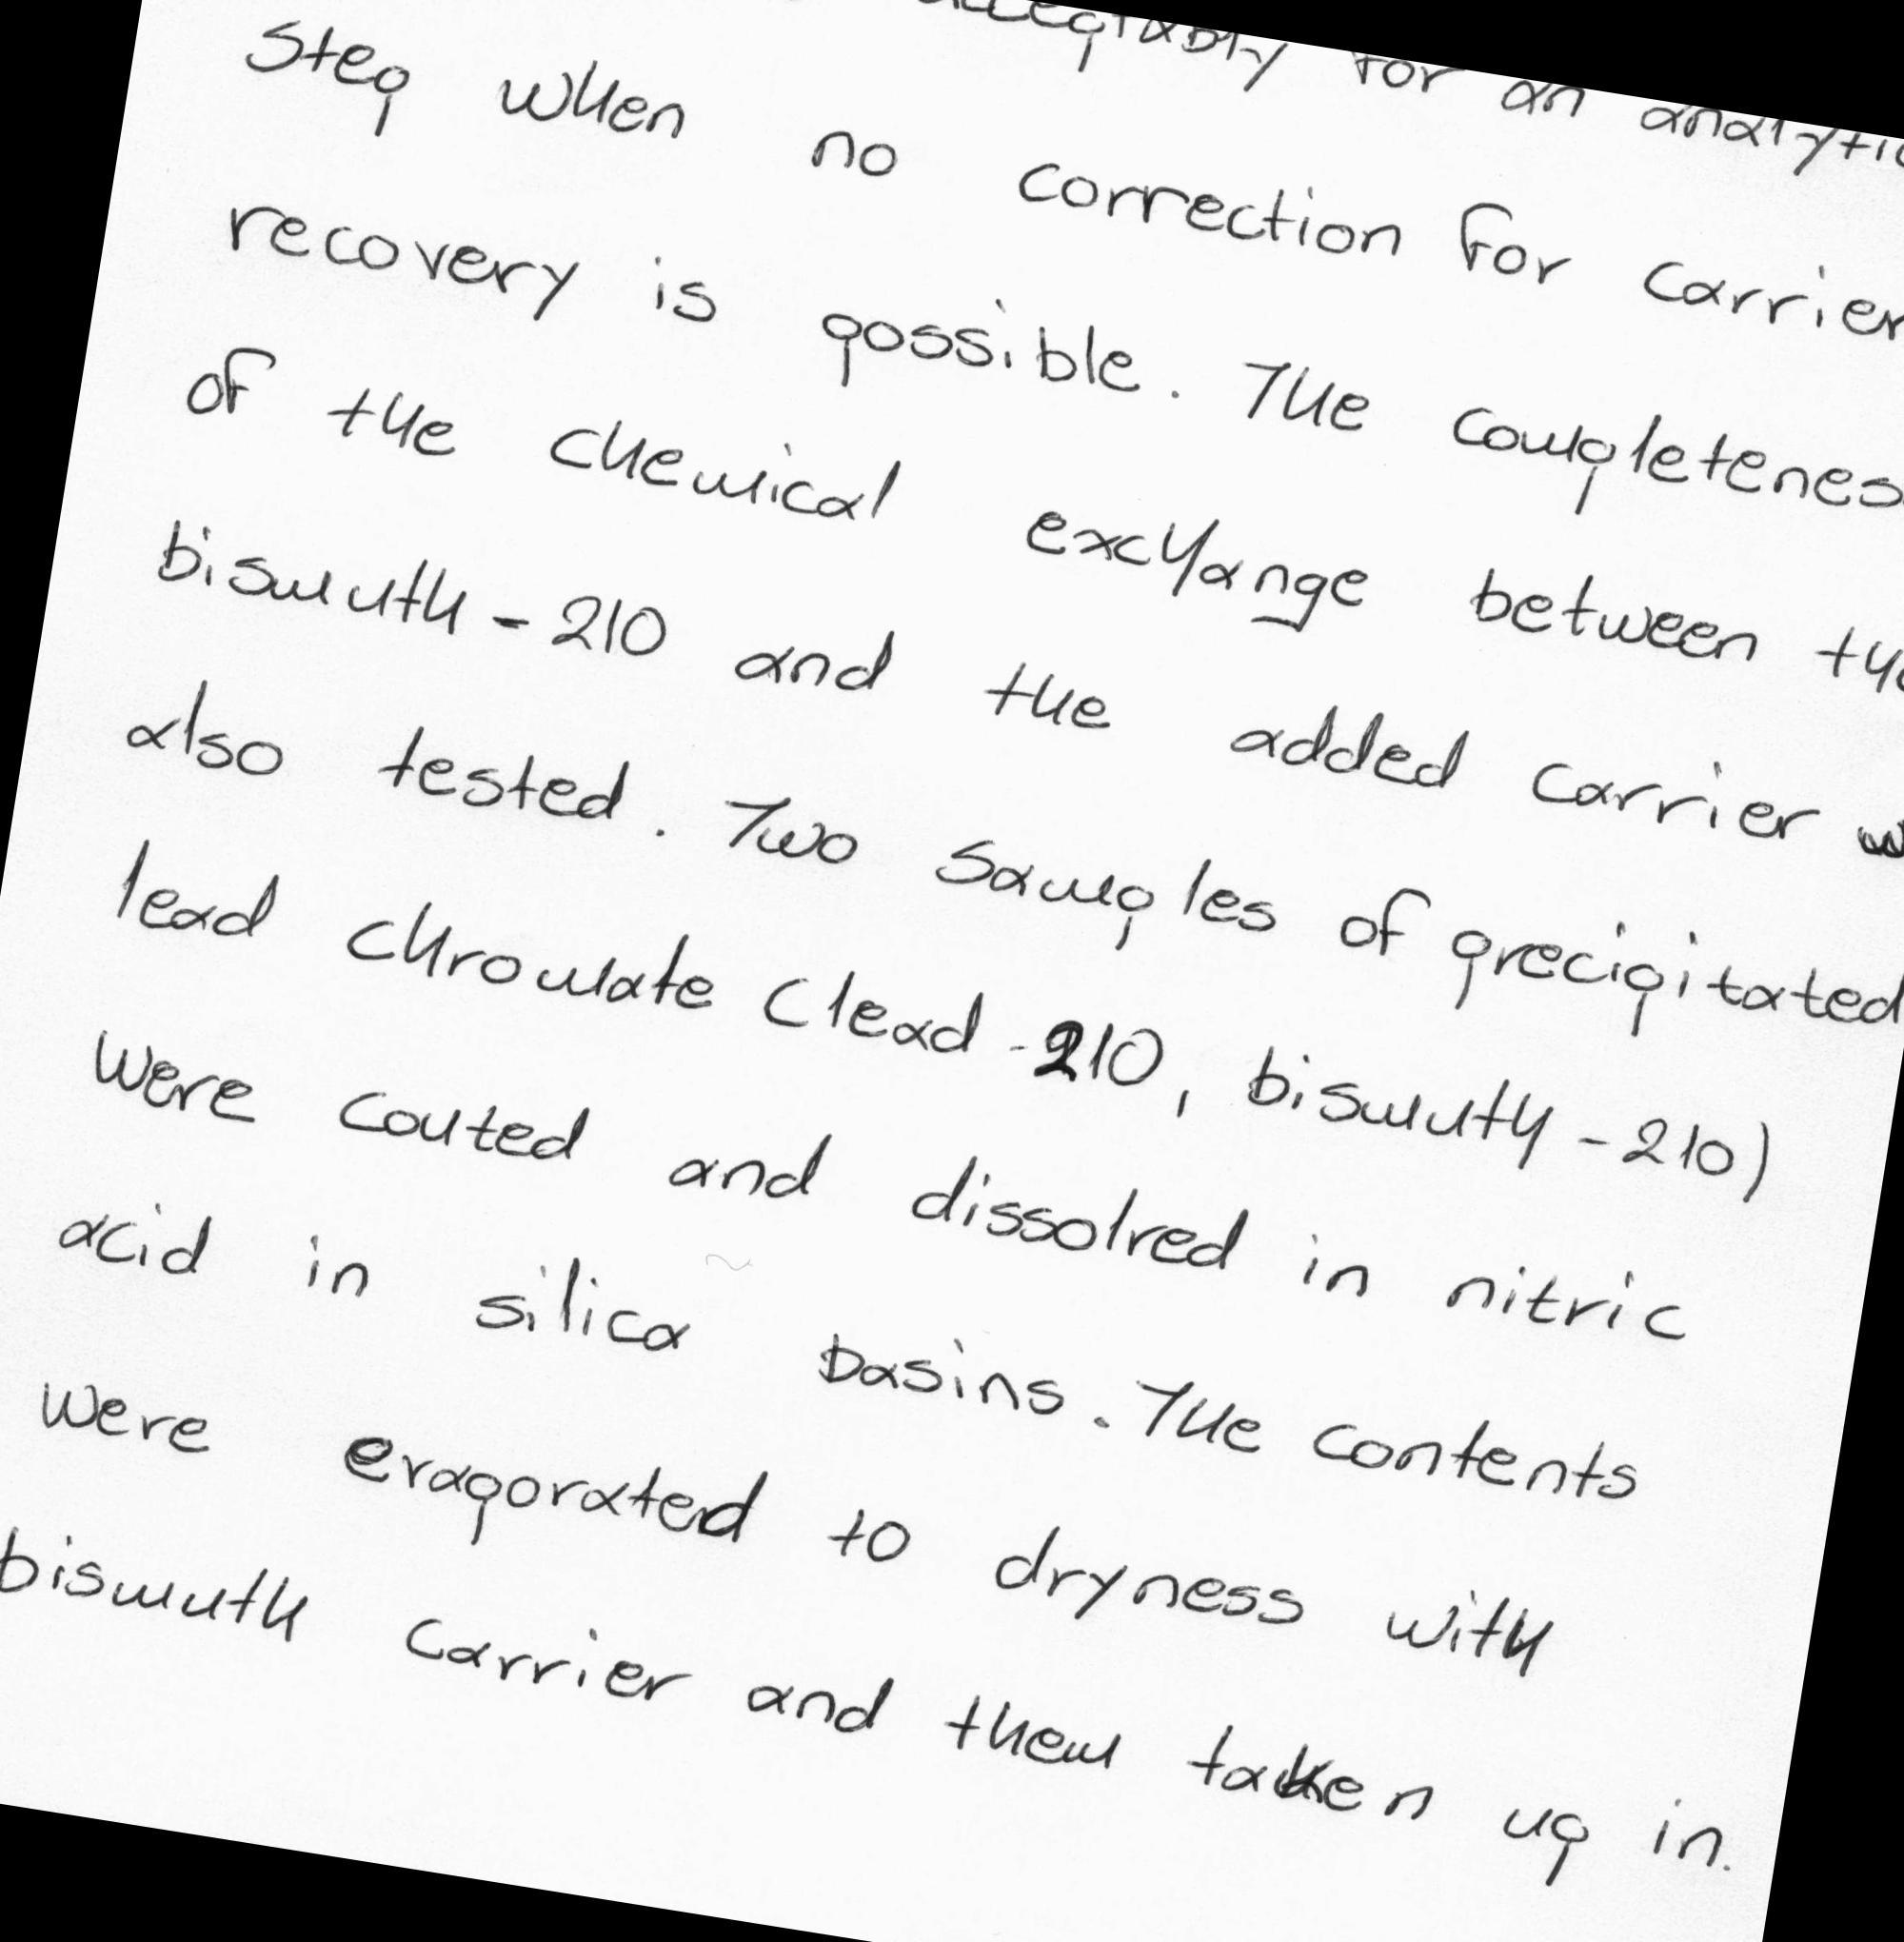 acceptably for an analytic
step when no correction for carrier
recovery is possible. The completenes
of the chemical exchange between the
bismuth-210 and the added carrier w
also tested. Two samples of precipitated
lead chromate (lead-210, bismuth-210)
were couted and dissolved in nitric
acid in silica basins. The contents
were evaporated to dryness with
bismuth carrier and them taken up in.